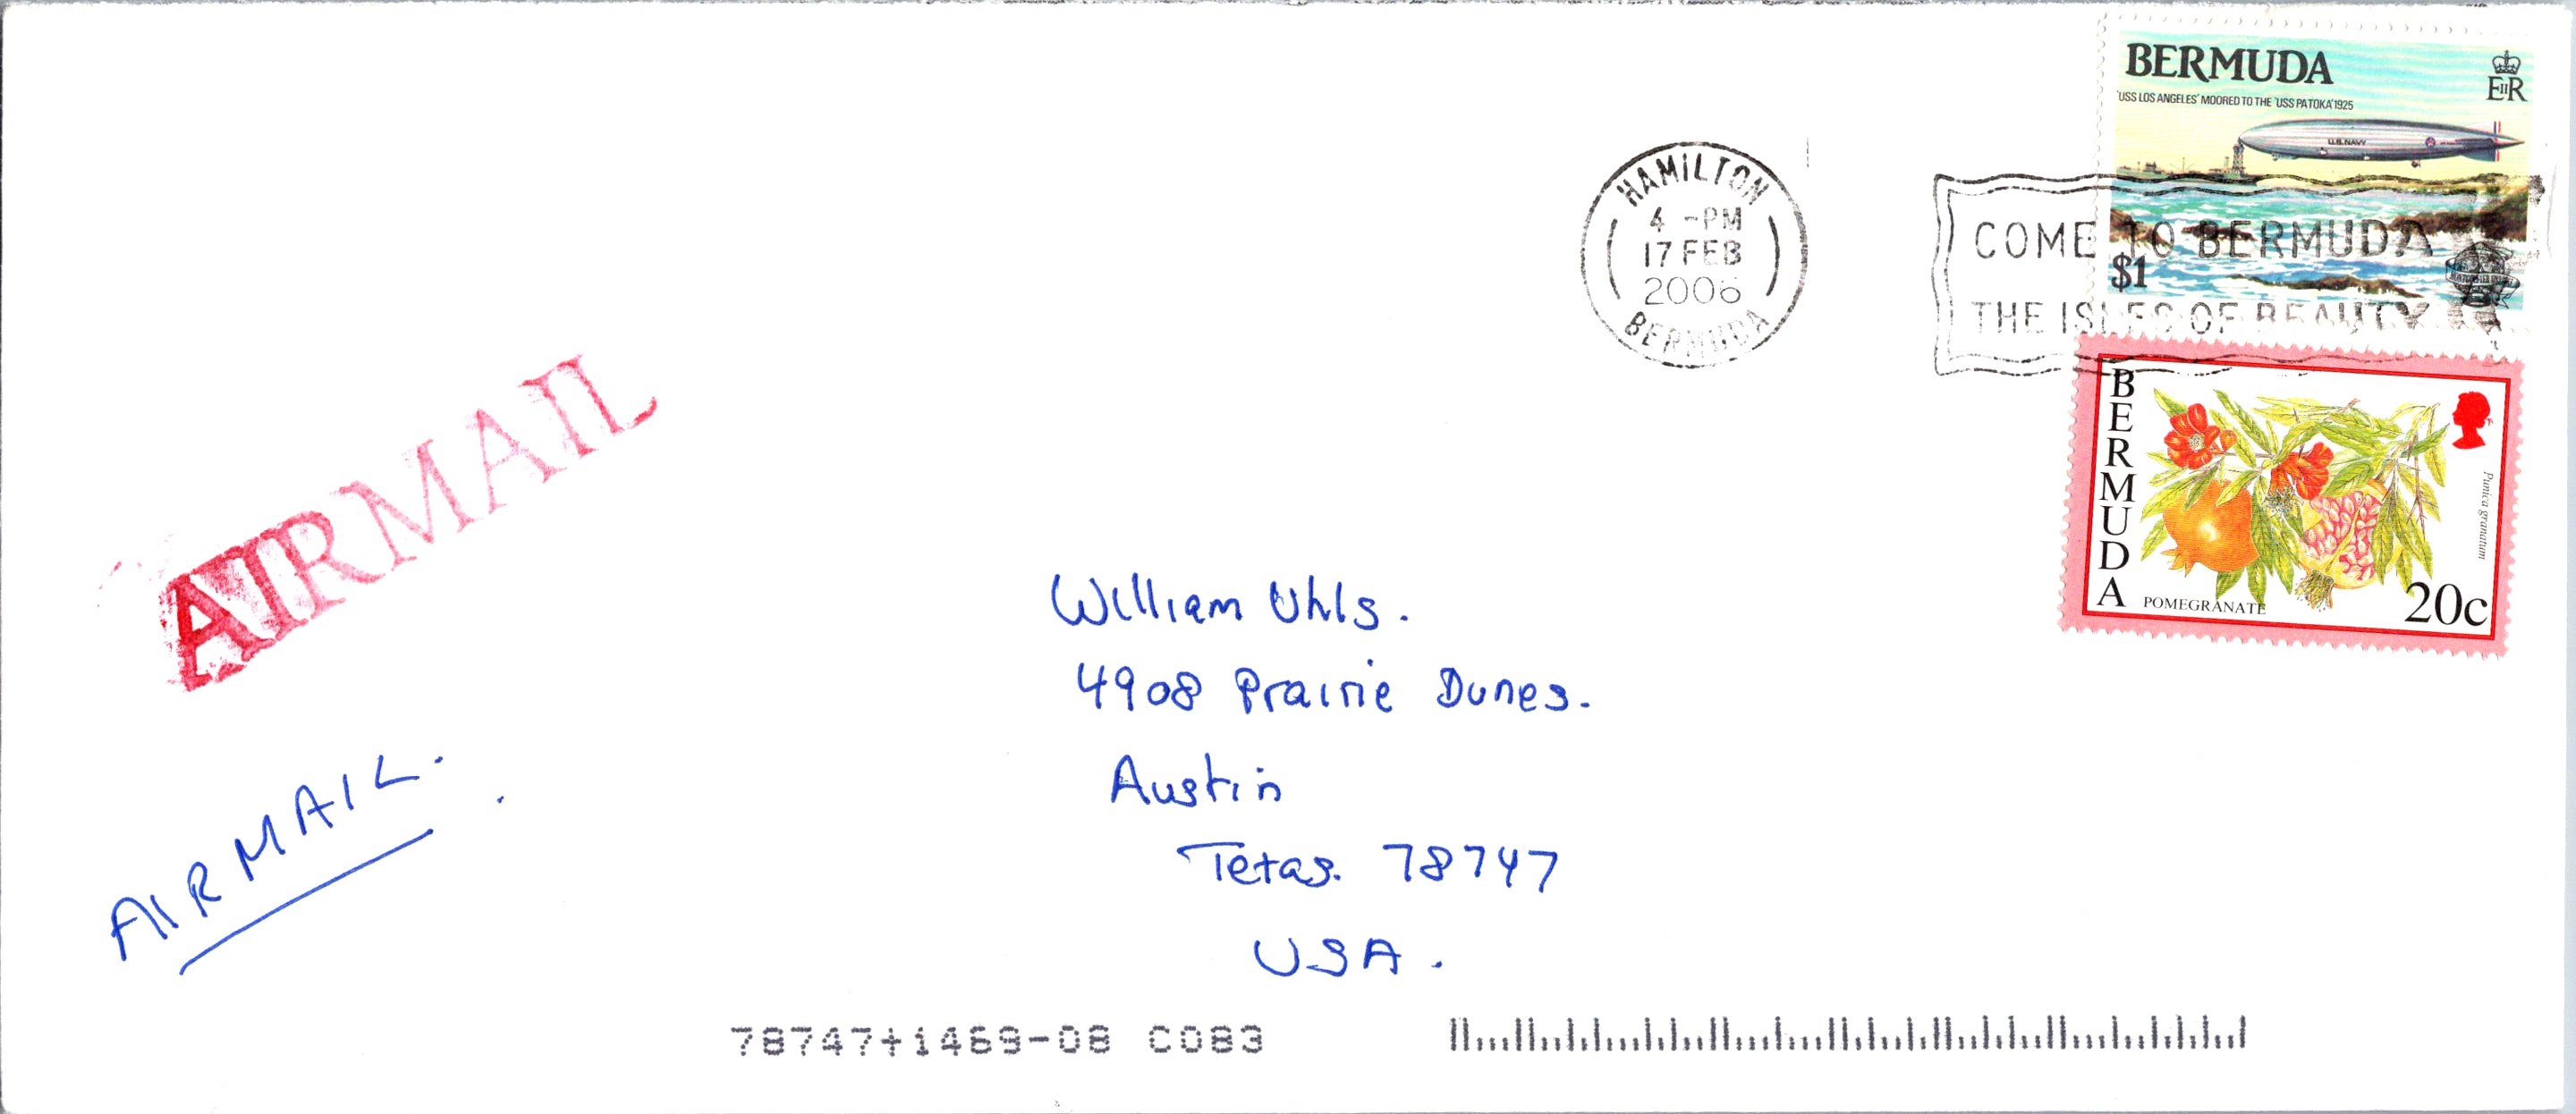 BERMUDA
EIIR
'USS LOS ANGELES' MOORED TO THE 'USS PATOKA' 1925
U.S. NAVY
$1
HAMILTON
4 -PM
17 FEB
2006
BERMUDA
COME TO BERMUDA
THE ISLES OF BEAUTY
BERMUDA
Punica granatum
POMEGRANATE
20c
AIRMAIL
AIRMAIL.
William Uhls.
4908 Prairie Dunes.
Austin
Texas. 78747
USA.
78747+1469-08 C083